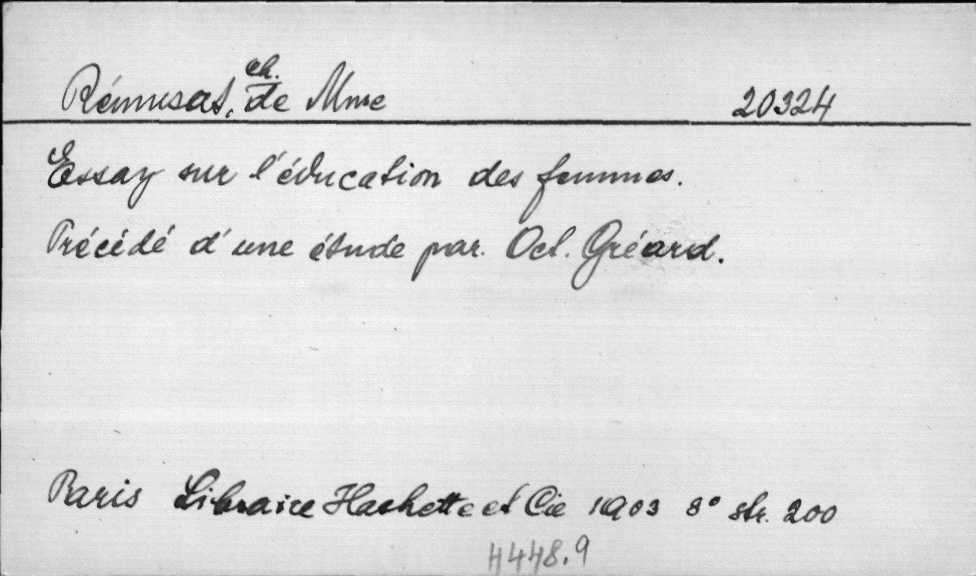 Rémusat, ch. de Mme 20324
Essay sur l'éducation des femmes.
Précédé d'une étude par. Oct. Gréard.
Paris Libraire Hachette et Cie 1903 8° str. 200
4448.9